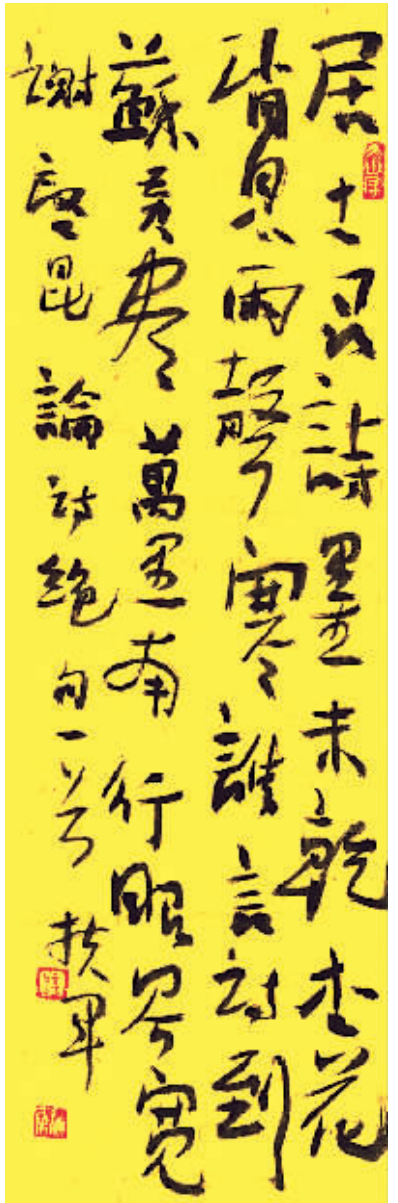 居士詩墨未乾杏花
消息雨聲寒誰言詩到
蘇黃盡萬里南行眼界寬
謝啓昆論詩絕句一首